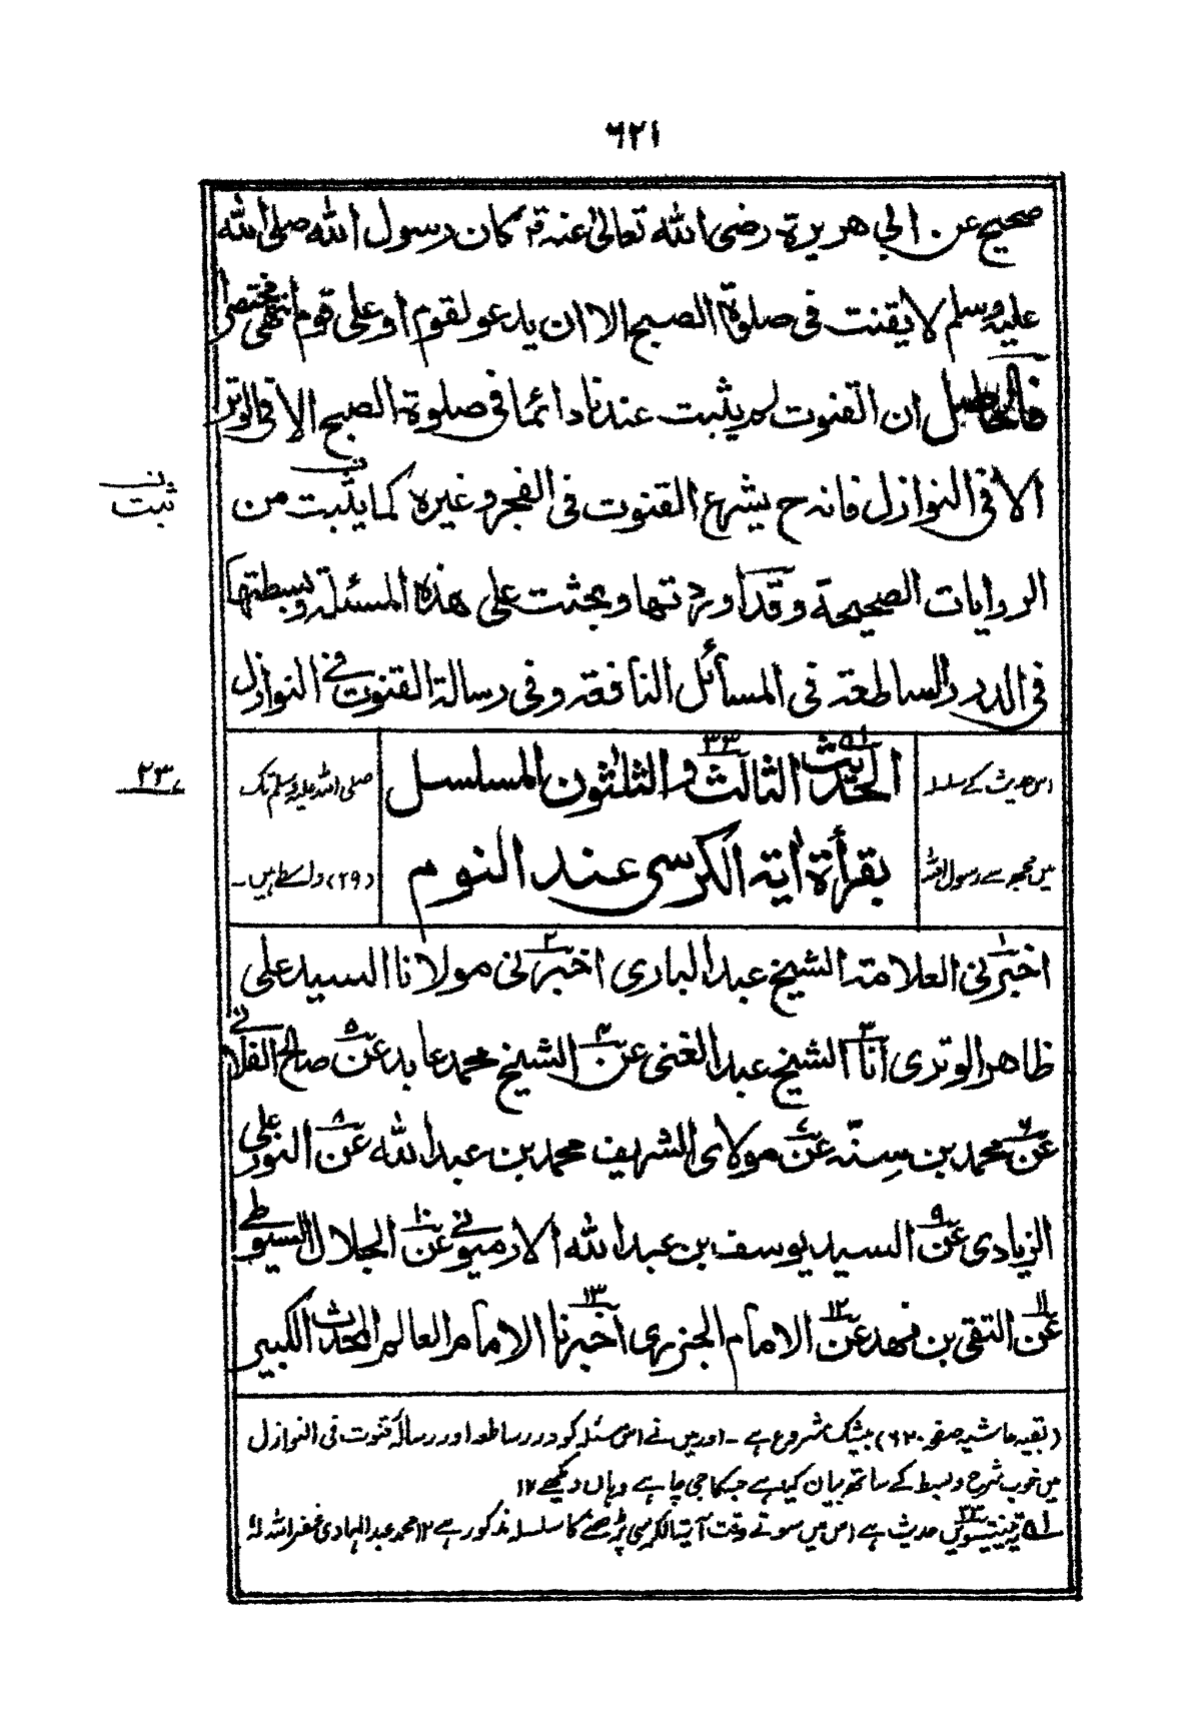 ٦٢١
صحيح عن ابي هريرة رضي الله تعالى عنه قا كان رسول الله صلى الله
عليه وسلم لا يقنت فى صلوة الصبح الا ان يدعو لقوم او على قوم انتهى مختصرا
فالحاصل ان القنوت لم يثبت عندنا دائما فى صلوة الصبح الا فى الوتر
الا فى النوازل فانه ح يشرع القنوت فى الفجر وغيره كما يثبت من
ثبت
الروايات الصحيحة وقد اوردتها وبحثت على هذه المسئلة وبسطتها
فى الدرر الساطعة فى المسائل النافعة وفى رسالة القنوت فى النوازل
اس حدیث کے سلسلہ
الحديث الثالث و الثلثون المسلسل
صلی اللہ علیہ وسلم تک
٢٣
میں مجھ سے رسول اللہ
بقرأة أية الكرسى عند النوم
(٢٩) واسطے ہیں۔
اخبرنى العلامة الشيخ عبد البارى اخبرنى مولانا السيد على
ظاهر الوترى انا الشيخ عبد الغنى عن الشيخ محمد عابد عن صالح الفلانى
عن محمد بن سِنّه عن مولاى الشريف محمد بن عبد الله عن النور على
الزيادى عن السيد يوسف بن عبد الله الارميونى عن الجلال السيوطى
عن التقى بن فهد عن الامام الجزرى اخبرنا الامام العالم المحدث الكبير
(بقیہ حاشیہ صفحہ ٦٢٠) بیشک مشروع ہے ۔ اور میں نے اس مسئلہ کو درر ساطعہ اور رسالہ قنوت فی النوازل
میں خوب شرح وبسط کے ساتھ بیان کیا ہے جسکا جی چاہے وہاں دیکھے ١٢
٥١ تینتیسویں حدیث ہے اس میں سوتے وقت آیة الکرسی پڑھنے کا سلسلہ مذکور ہے ١٢ محمد عبد الہادی غفر اللہ لہ